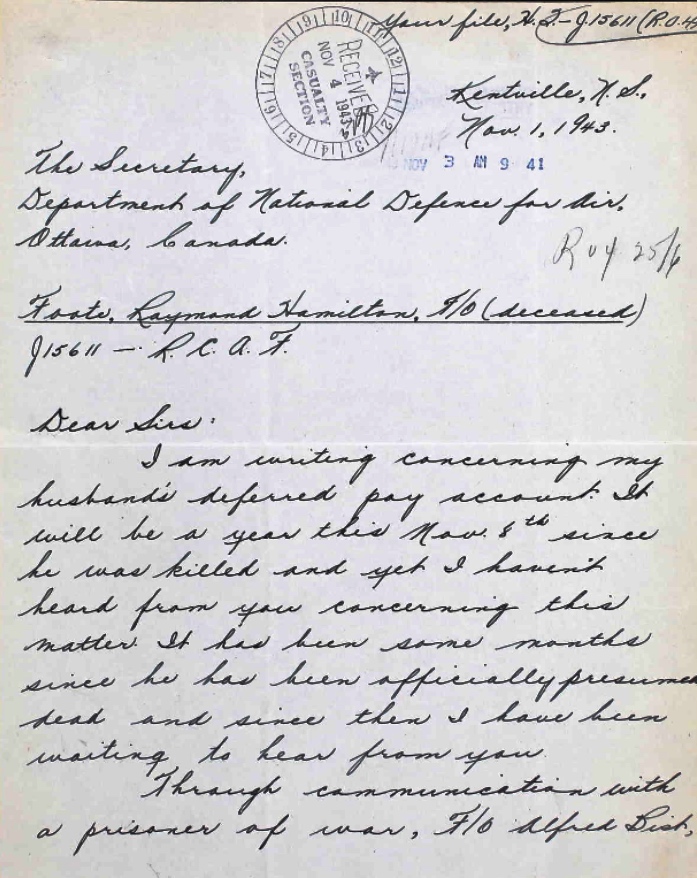 Your file, H.Q.-J.15611 (R.O.4)
RECEIVED
NOV 4 1943
CASUALTY
SECTION
Kentville, N.S.,
Nov. 1, 1943.
NOV 3 AM 9 41
The Secretary,
Department of National Defence for Air,
Ottawa, Canada.
Foote, Raymond Hamilton, F/O (deceased)
J15611 — R.C.A.F.
Dear Sirs:
I am writing concerning my
husband's deferred pay account. It
will be a year this Nov. 8th since
he was killed and yet I haven't
heard from you concerning this
matter. It has been some months
since he has been officially presumed
dead and since then I have been
waiting to hear from you.
Through communication with
a prisoner of war, F/O Alfred